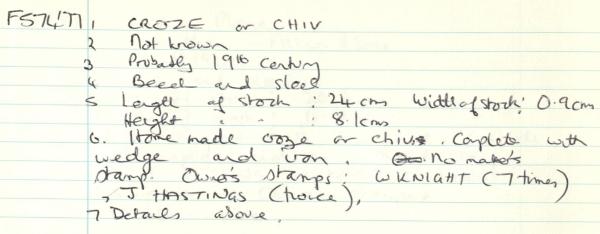 FS74/77 1 CROZE or CHIV
2 Not known
3 Probably 19th century
4 Beech and steel
5 Length of stock : 24cm Width of stock: 0.9cm
Height " " : 8.1cm
6. Home made croze or chiv. Complete with
wedge and iron. No maker's
stamp. Owner's stamps: W KNIGHT (7 times)
, J HASTINGS (twice),
7 Details above.